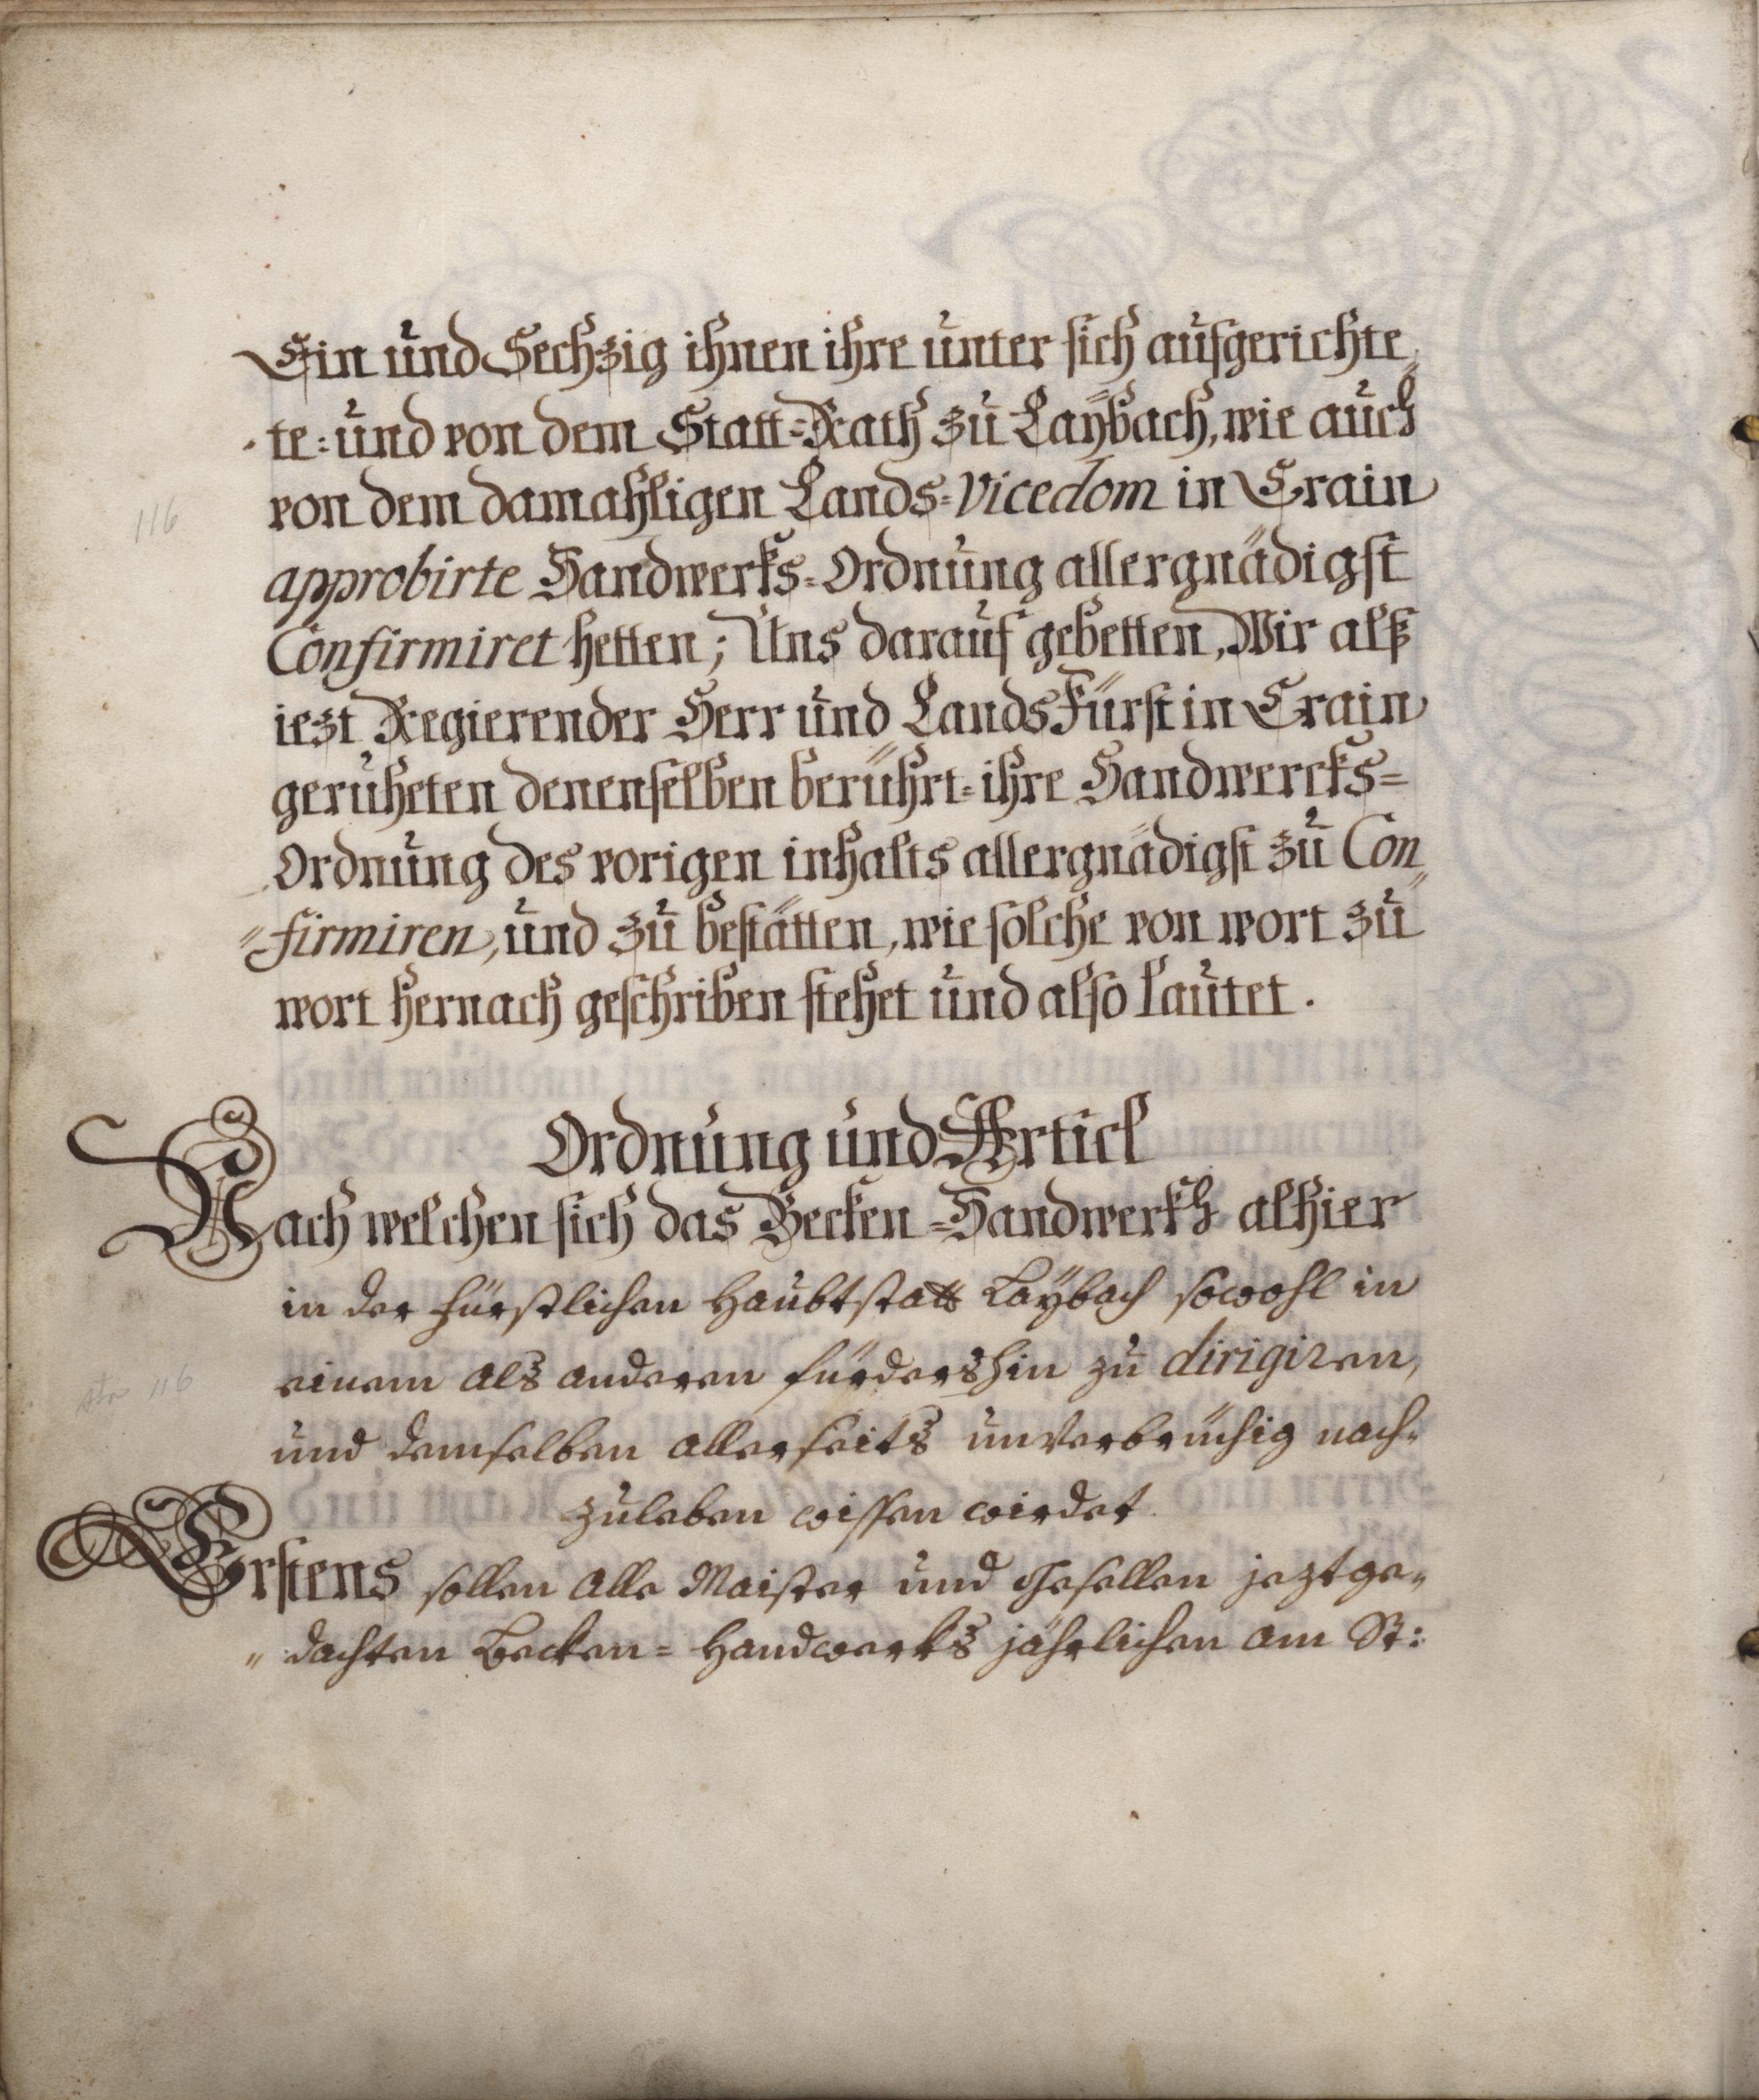 Ein und Sechzig ihnen ihre unter sich aufgerichte„
te: und von dem Statt=Rath zu Laÿbach, wie auch
116
von dem damahligen Lands=Vicedom in Crain
approbirte Handwerks=Ordnung allergnädigst
Confirmiret hetten; Uns darauf gebetten, Wir alß
iezt Regierender Herr und LandsFürst in Crain
geruheten denenselben berührt=ihre Handwercks=
Ordnung des vorigen inhalts allergnädigst zu Con„
„firmiren, und zu bestätten, wie solche von wort zu
wort hernach geschriben stehet und also lautet.
Ordnung und Articl
Nach welchen sich das Becken=Handwerkh alhier
in der fürstlichen Haubtstatt Laÿbach sowohl in
einem als anderen fürdershin zu dirigiren,
116
und demselben allerseits unverbrüchig nach„
zuleben wissen wirdet.
Erstens sollen alle Maister und Gesellen jeztge„
„dachten Becken=Handwerks jährlichen am St: